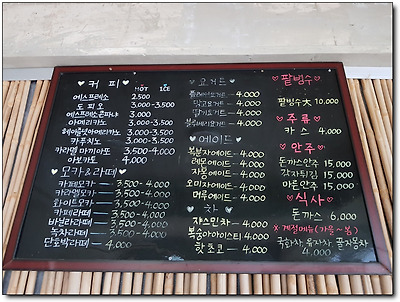 ♥ 커피 ♥
HOT ICE
에스프레소 2.500
도피오 3.000-3.500
에스프레소콘파냐 3.000
아메리카노 3.000-3.500
헤이즐넛아메리카노 3.500
카푸치노 3.500
카라멜 마끼아또 3.500-4.000
아보카토 4.000
♥ 모카&라떼 ♥
카페모카 3.500-4.000
카라멜모카 3.500-4.000
화이트모카 3.500-4.000
카페라떼 3.500-4.000
바닐라라떼 3.500-4.000
녹차라떼 3.500-4.000
단호박라떼 4.000
♥ 요거트 ♥
플레인요거트 4.000
망고요거트 4.000
딸기요거트 4.000
블루베리요거트 4.000
♥ 에이드 ♥
복분자에이드 4.000
레몬에이드 4.000
자몽에이드 4.000
오미자에이드 4.000
머루에이드 4.000
♥ 차 ♥
쟈스민차 4.000
복숭아아이스티 4.000
핫쵸코 4.000
♥ 팥빙수 ♥
팥빙수大 10,000
♥ 주류 ♥
카스 4,000
♥ 안주 ♥
돈까스안주 15,000
감자튀김 15,000
마른안주 15,000
♥ 식사 ♥
돈까스 6,000
※ 계절메뉴(가을~봄)
국화차 유자차 쌍화차
4.000